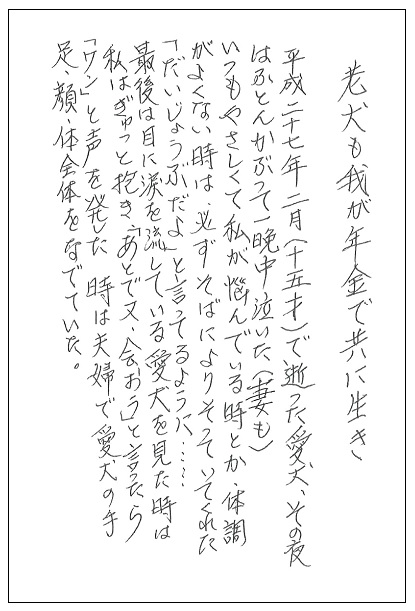 老犬も我が年金で共に生き
平成二十七年二月(十五才)で逝った愛犬、その夜
はふとんかぶって一晩中泣いた(妻も)
いつもやさしくて私が悩んでいる時とか、体調
がよくない時は、必ずそばによりそっていてくれた
「だいじょうぶだよ」と言ってるように……
最後は目に涙を流している愛犬を見た時は
私はぎゅっと抱き「あとで又、会おう」と言ったら
「ワン」と声を発した 時は夫婦で愛犬の手
足、顔、体全体をなでていた。